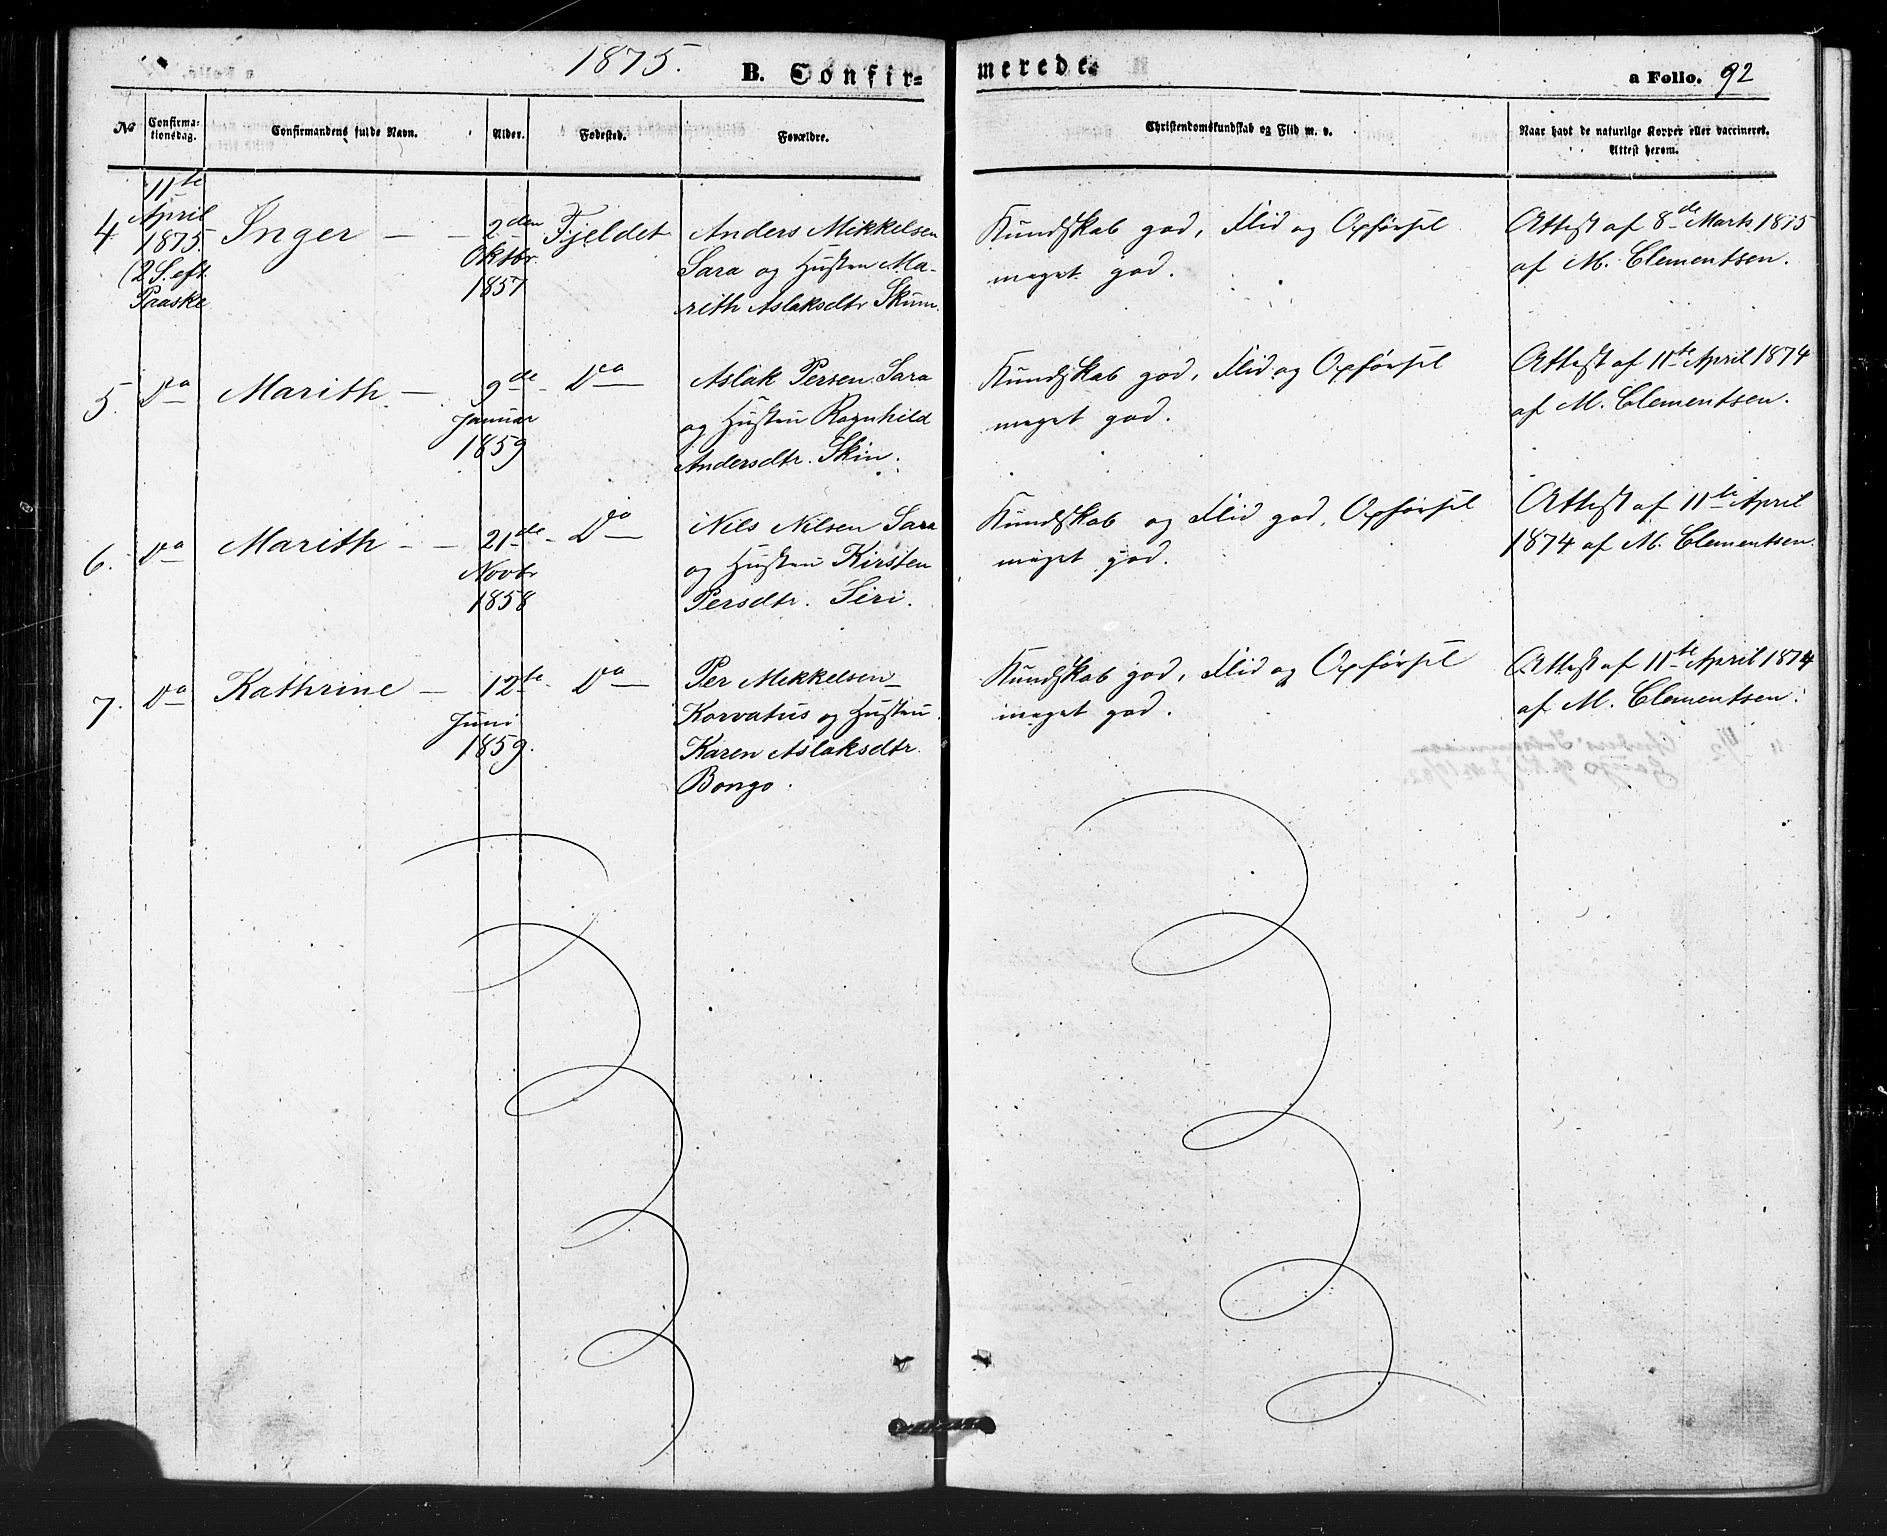 1875.
B. Confir-
merede.
a Folio. 92
No
Confirma-
tionsdag.
Confirmandens fulde Navn.
Alder.
Fødested.
Forældre.
Christendomskundskab og Flid m. v.
Naar havt de naturlige Kopper eller vaccineret.
Attest herom.
4 11te April 1875. (2 S. eft. Paaske
Inger – –
2den Oktbr. 1857
Fjeldet
Anders Mikkelsen
Sara og Hustru Ma-
rith Aslaksdtr Skum.
Kundskab god, Flid og Opførsel
meget god.
Attest af 8de Marts 1875
af M. Clementsen.
5. Do
Marith –
9de Januar 1859
Do
Aslak Persen Sara
og Hustru Ragnhild
Andersdtr. Skin.
Kundskab god, Flid og Opførsel
meget god.
Attest af 11te April 1874
af M. Clementsen.
6. Do
Marith – –
21de Novbr 1858
Do
Nils Nilsen Sara
og Hustru Kirsten
Persdtr. Siri.
Kundskab og Flid god, Opførsel
meget god.
Attest af 11te April
1874 af M. Clementsen.
7. Do
Kathrine –
12te Juni 1859.
Do
Per Mikkelsen
Korvatus og Hustru
Karen Aslaksdtr.
Bongo.
Kundskab god, Flid og Opførsel
meget god.
Attest af 11te April 1874
af M. Clementsen.